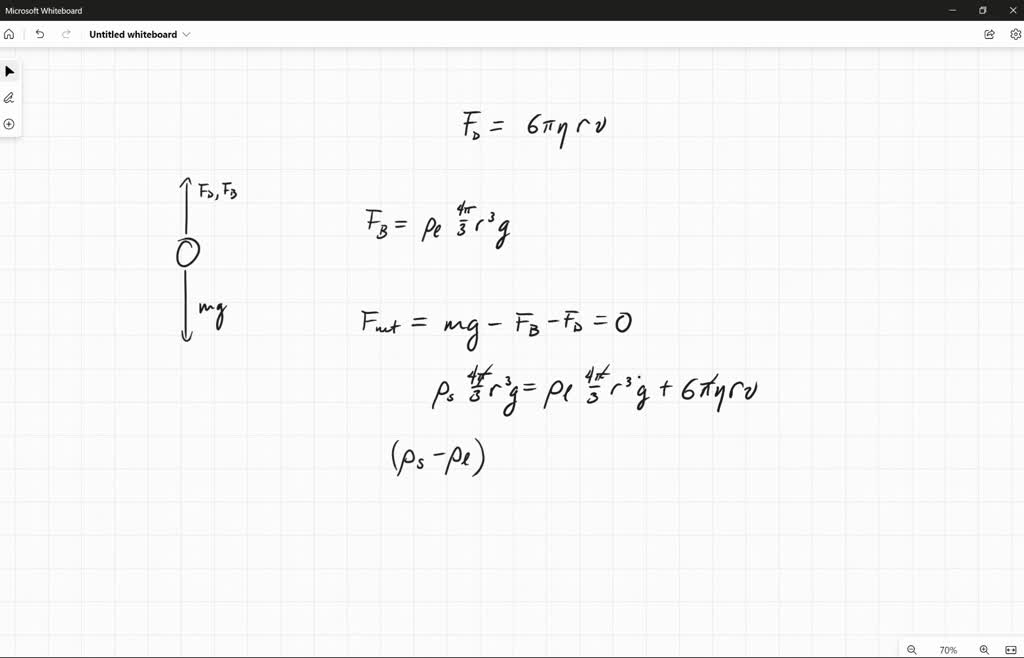 Microsoft Whiteboard
Untitled whiteboard
F_D = 6πηrv
F_D, F_B
F_B = ρ_l 4π/3 r³g
mg
F_net = mg - F_B - F_D = 0
ρ_s 4π/3 r³g = ρ_l 4π/3 r³g + 6πηrv
(ρ_s - ρ_l)
70%